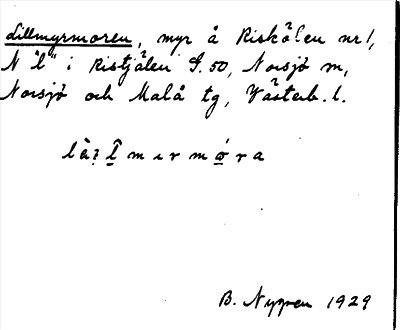 Lillmyrmoren, myr å Riskälen nr 1,
N "l" i Ristjälen S. 50, Norsjö m,
Norsjö och Malå tg, Västerb. l.
B. Nygren 1929